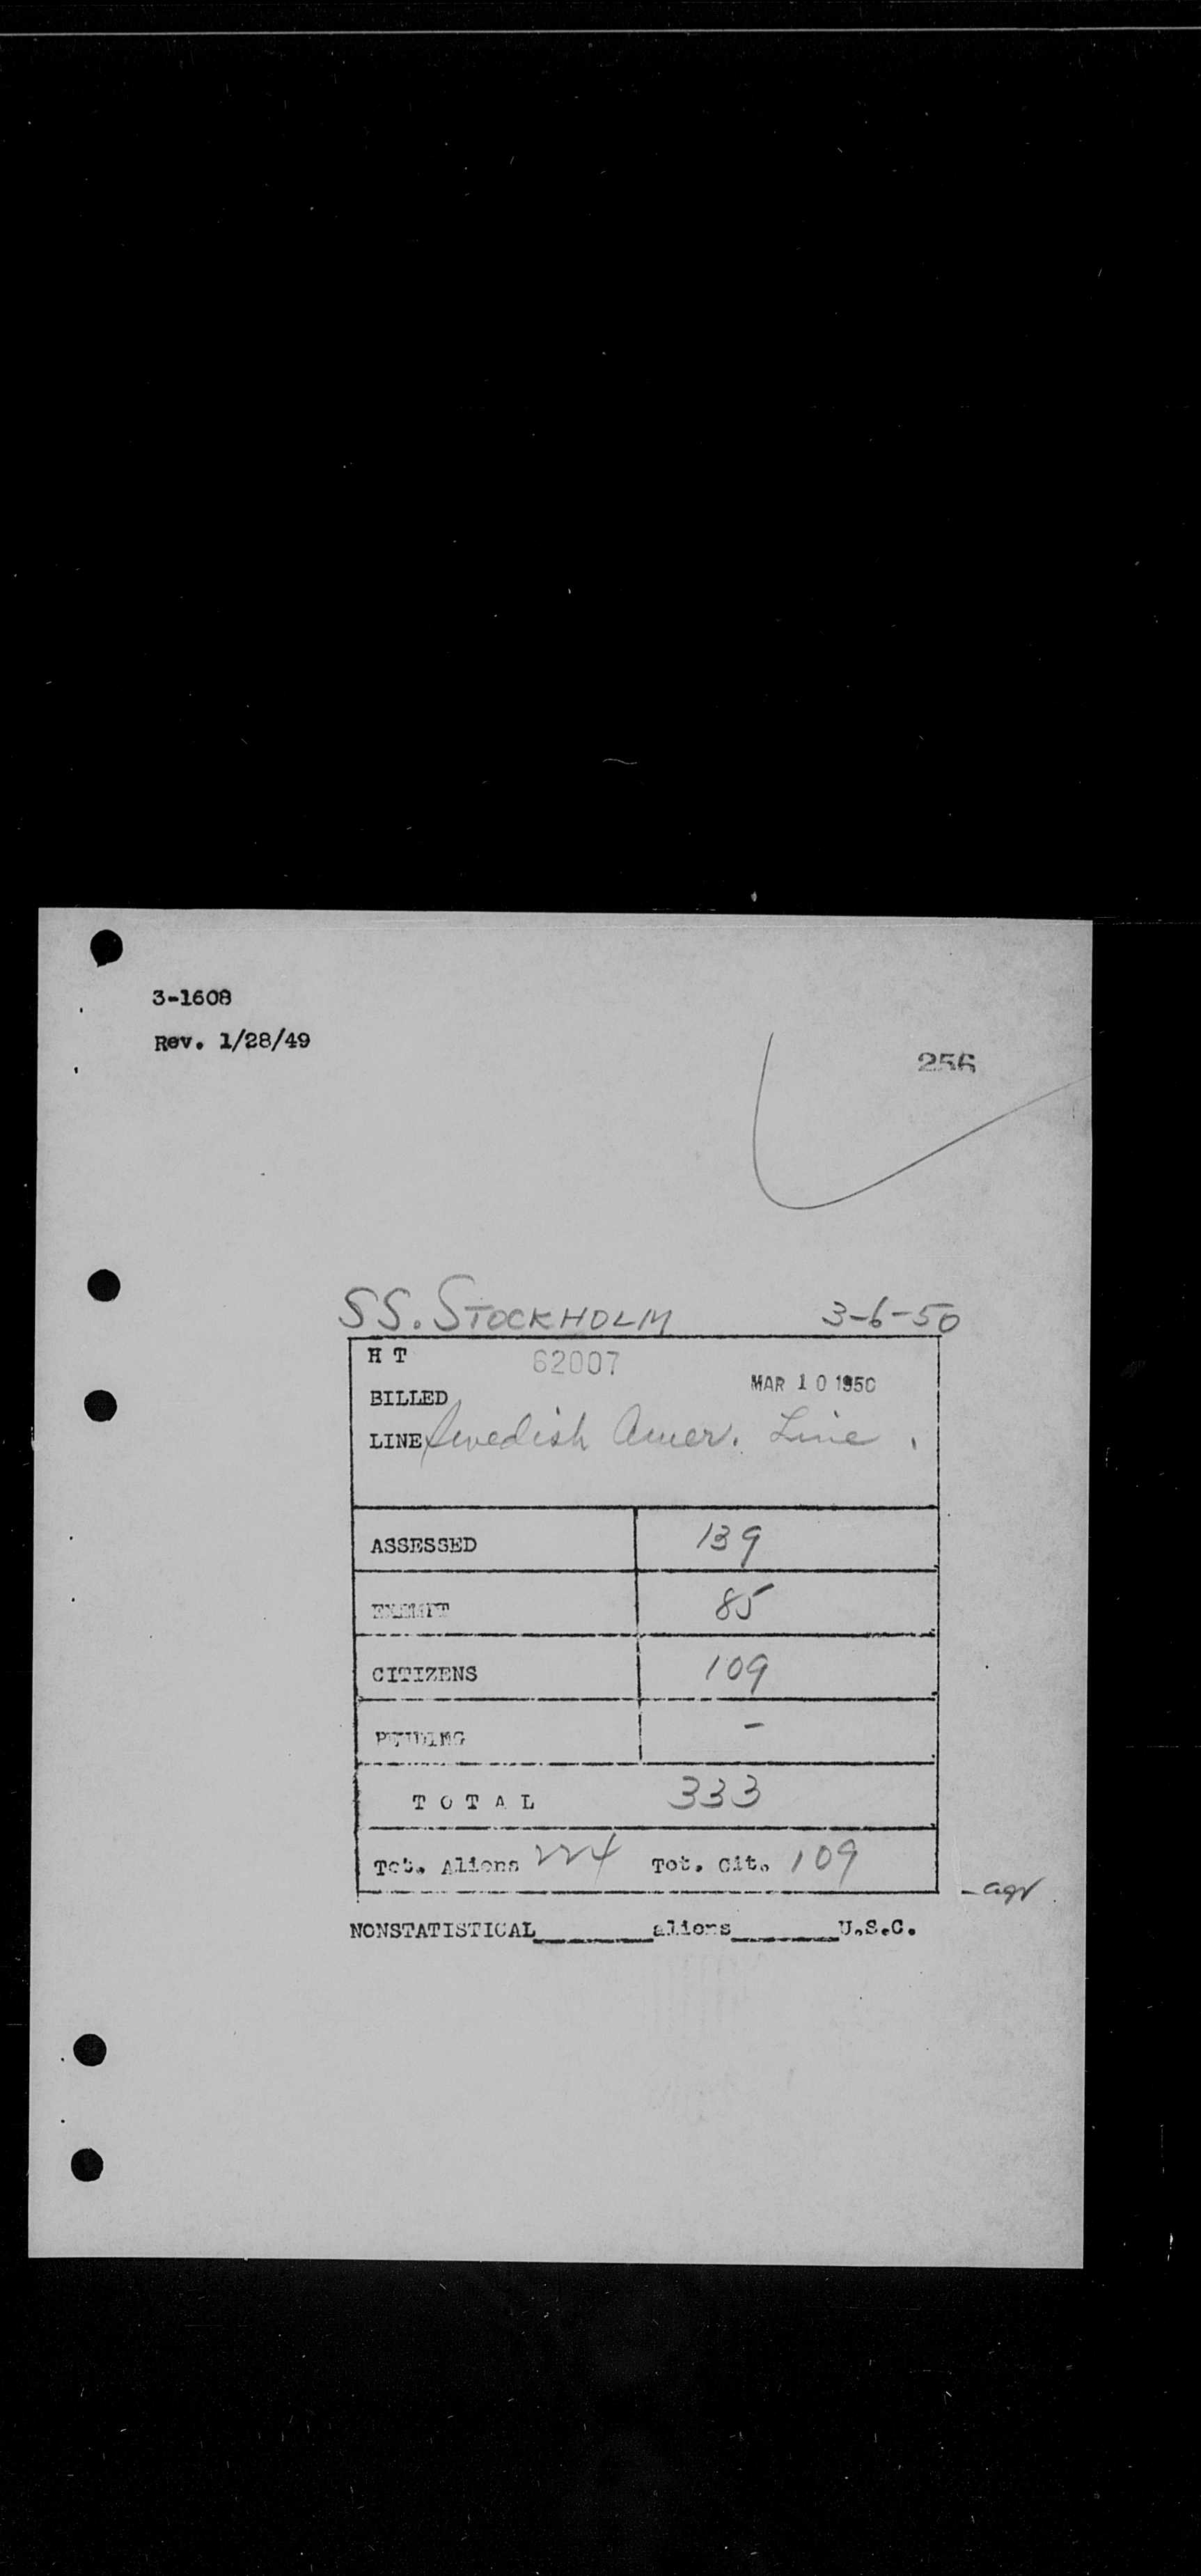 3-1608
Rev. 1/28/49
256
SS. STOCKHOLM 3-6-50
H T 62007
BILLED MAR 10 1950
LINE Swedish Amer. Line.
ASSESSED 139
EXEMPT 85
CITIZENS 109
PENDING -
T O T A L 333
Tot. Aliens 224 Tot. Cit. 109
NONSTATISTICAL________aliens_______U.S.C.